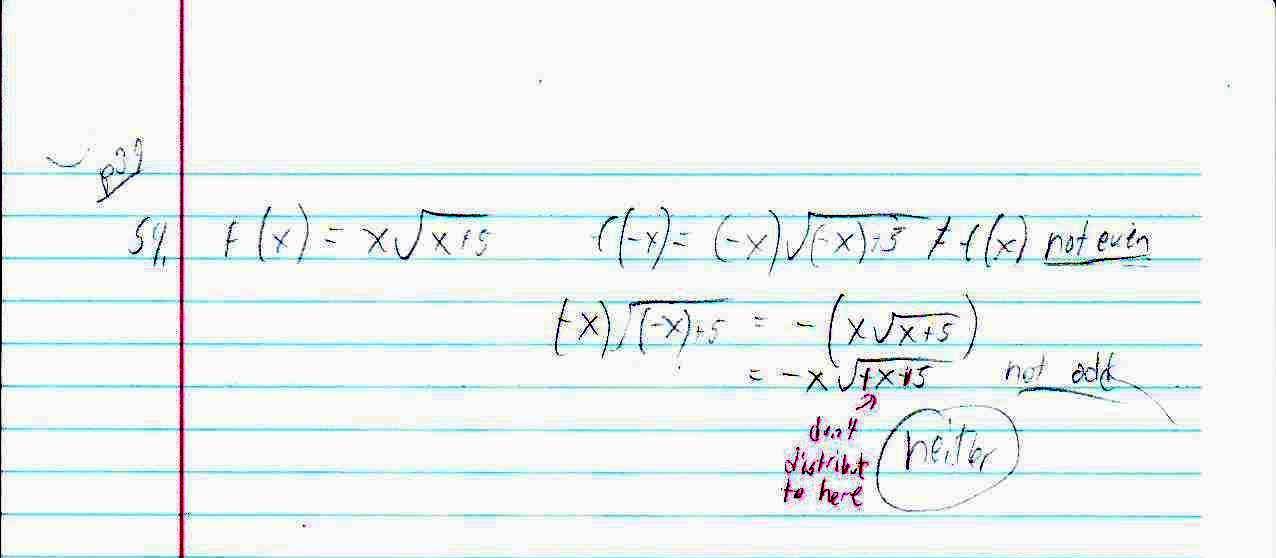 p39
54. f(x) = x√(x+5) f(-x) = (-x)√((-x)+5) ≠ f(x) not even
(-x)√((-x)+5) = -(x√(x+5))
= -x√(+x+5) not odd
don't
distribute
to here
neither